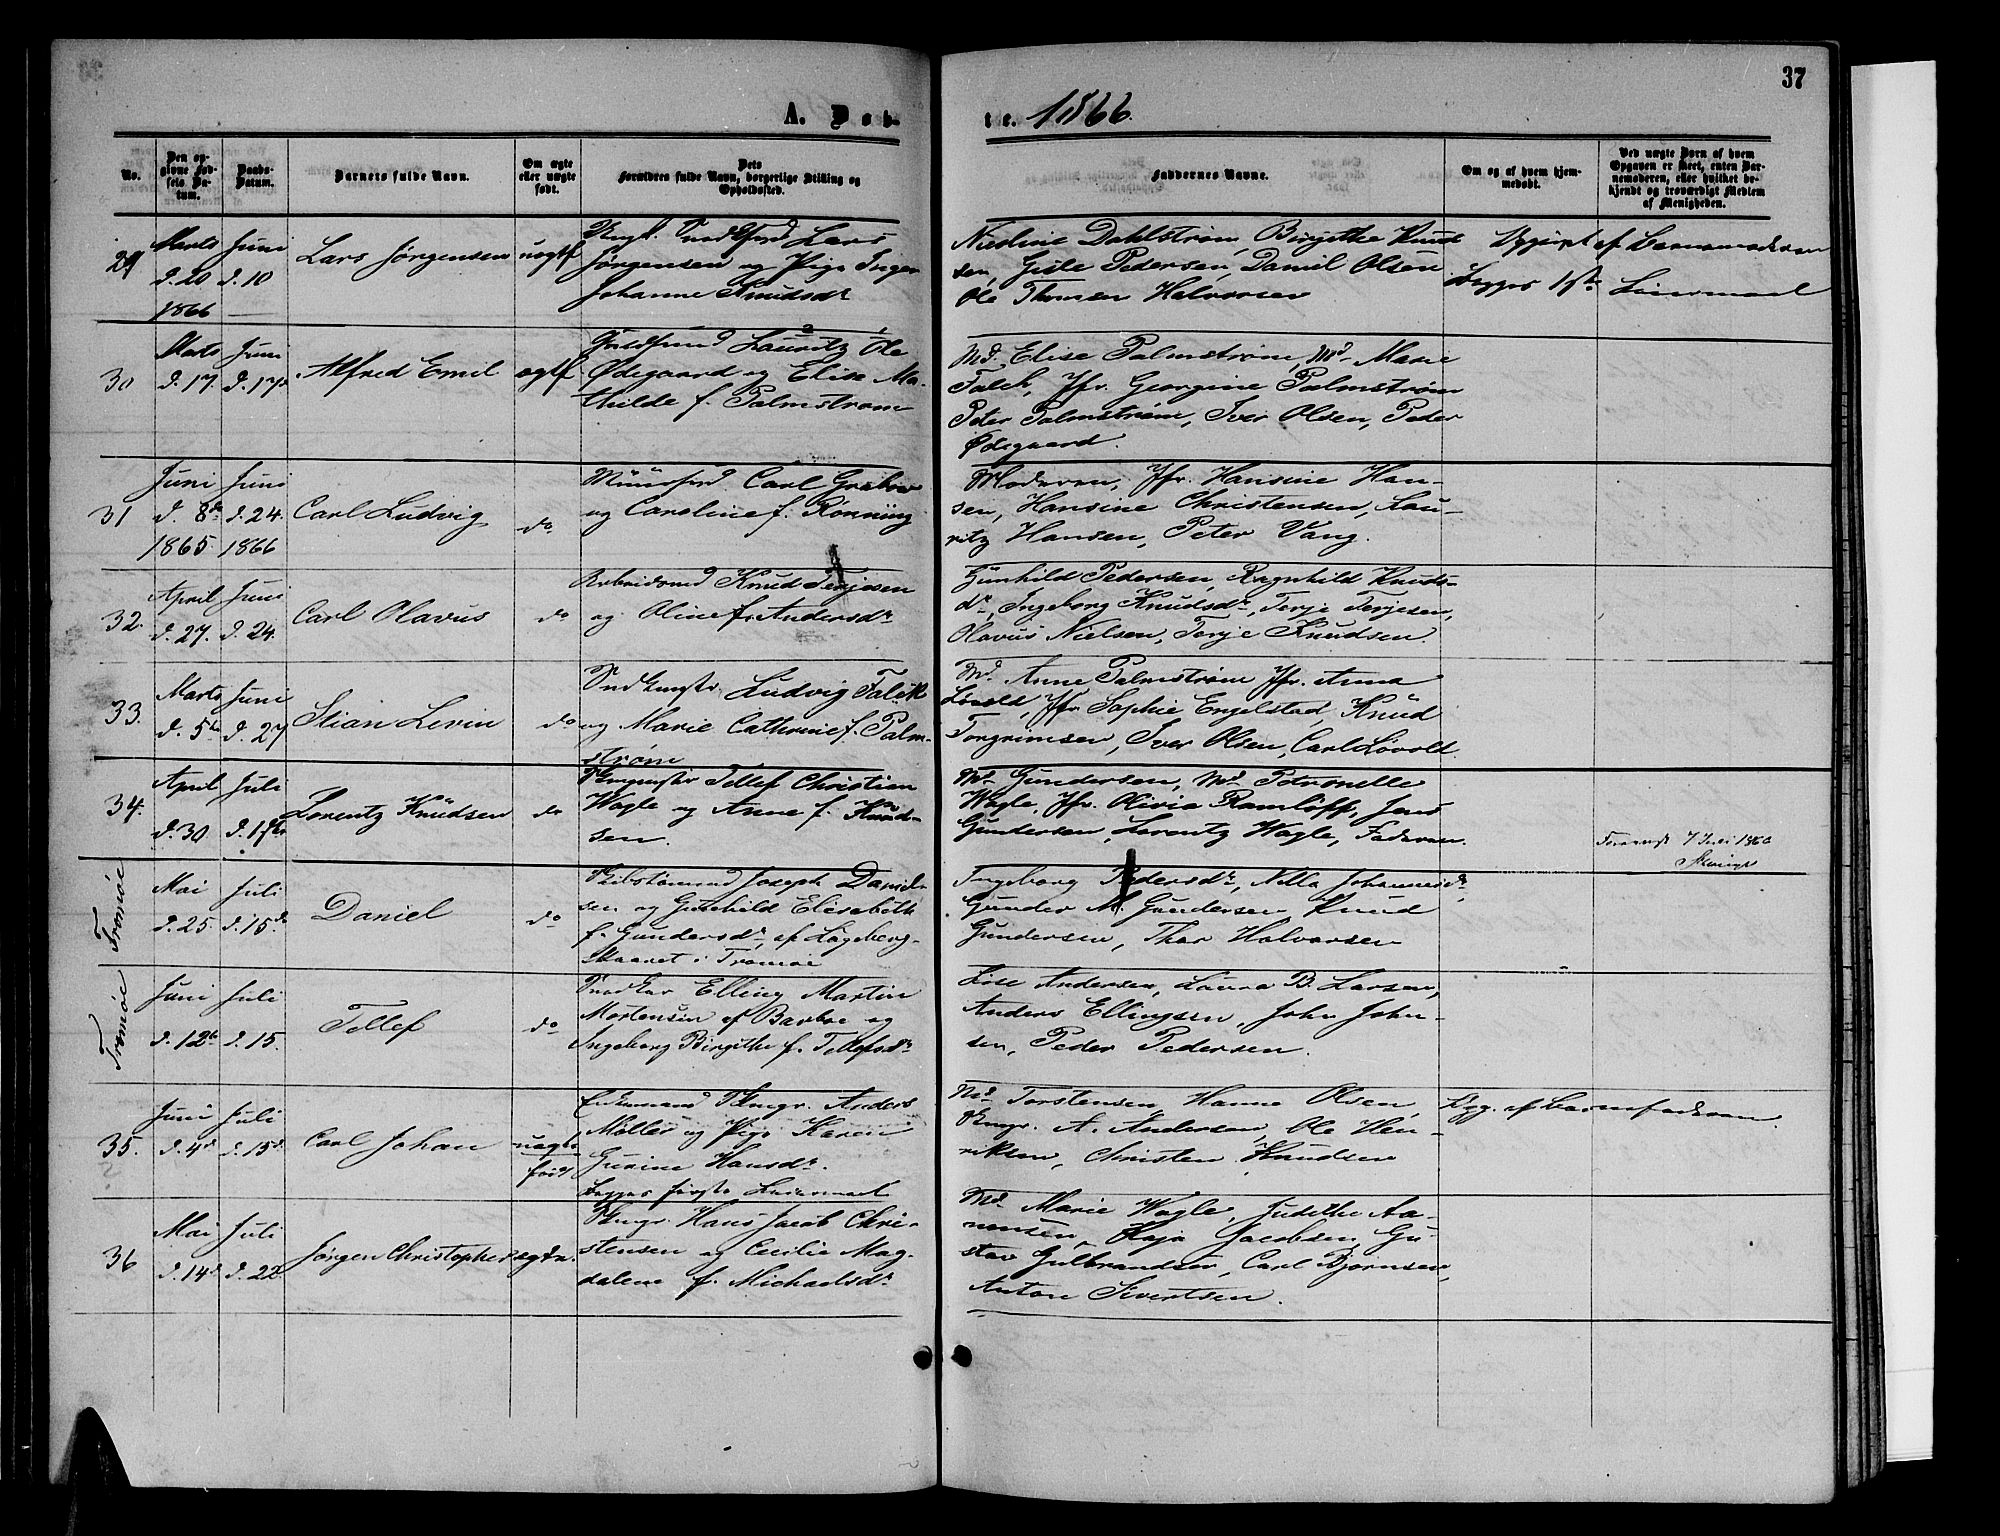 37
A. Føb-
te. 1866.
No.
Den op-
givne Fød-
sels Da-
tum.
Daabs-
Datum.
Barnets fulde Navn.
Om ægte
eller uægte
født.
Dets
Forældres fulde Navn, borgerlige Stilling og
Opholdssted.
Faddernes Navne.
Om og af hvem hjem-
medøbt.
Ved uægte Børn af hvem
Opgaven er skeet, enten Bar-
nemoderen, eller hvilket be-
kjendt og troværdigt Medlem
af Menigheden.
29
Marts
d. 20
1866
Juni
d. 10
Lars Jørgensen
uægtf
Lars
Jørgensen og Pige Inger
Johanne Knudsdr
Nicoline Dahlstrøm, Birgithe Knud
sen, Gisle Pedersen, Daniel Olsen
Ole Thomsen Halvorsen
Opgivet af Barnemoderen
Begges 1ste Leiermaal
30
Marts
d. 17.
Juni
d. 17de
Alfred Emil
ægtf.
Lauritz Ole
Ødegaard og Elise Ma-
thilde f. Palmstrøm
Md. Elise Palmstrøm, Md. Marie
Falch, Jfr. Georgine Palmstrøm
Peter Palmstrøm, Iver Olsen, Peder
Ødegaard.
31
Juni
d. 8de
1865
Juni
d. 24.
1866
Carl Ludvig
do.
Carl Grabow
og Caroline f. Rønning
Moderen, Jfr. Hansine Han-
sen, Hansine Christensen, Lau-
ritz Hansen, Peter Vang.
32.
April
d. 27.
Juni
d. 24.
Carl Olavus
do
Arbeidsmd Knud Terjesen
og Oline f. Andersdr
Gunhild Pedersen, Ragnhild Knuds-
dr, Ingeborg Knudsdr, Terje Terjesen,
Olavus Nielsen, Terje Knudsen.
33.
Marts
d. 5te
Juni
d. 27
Stian Levin
do
Ludvig Falck
og Marie Cathrine f. Palm-
strøm
Md. Anne Palmstrøm Jfr. Anna
Løvold, Jfr Sophie Engelstad, Knud
Torgrimsen, Iver Olsen, Carl Løvold.
34.
April
d. 30
Juli
d. 1ste
Lorentz Knudsen
do
Tellef Christian
Wagle og Anne f. Knud-
sen.
Md. Gundersen, Md. Petronelle
Wagle, Jfr. Olivia Ramløff, Jens
Gundersen, Lorentz Wagle, Faderen.
Tromøe
Mai
d. 25.
Juli
d. 15de
Daniel
do
Skibstømmd Joseph Daniel-
sen og Gunhild Elisabeth
f. Gundersdr, af Løgeberg-
skaaret i Tromøe
Ingeborg Pedersdr, Nella Johannesdr,
Gunder M. Gundersen, Knud
Gundersen, Thor Halvorsen
7 Juli 1866
Tromøe
Juni
d. 12te
Juli
d. 15.
Tellef
do
Elling Martin
Mortensen af Barboe og
Ingeborg Birgithe f. Tellefsdr
Lise Andersen, Laura B. Larsen,
Anders Ellingsen, John John-
sen, Peder Pedersen.
35.
Juni
d. 4de
Juli
d. 15de
Carl Johan
uægte
født
Enkemand Skmgr. Anders
Møller og Pige Karen
Gurine Hansdr.
Begges første Leiermaal
Md Torstensen, Hanne Olsen,
A. Andersen, Ole Hen-
riksen, Christen Knudsen
Opg. af Barnefaderen.
36
Mai
d. 14de
Juli
d. 22.
Jørgen Christopher
ægte.
Hans Jacob Chri-
stensen og Cecilie Mag-
dalene f. Michaelsdr
Md Marie Wagle, Judithe Aa-
nensen, Jacobsen, Gu-
stav Gulbrandsen, Carl Bjørnsen,
Anton Sivertsen.